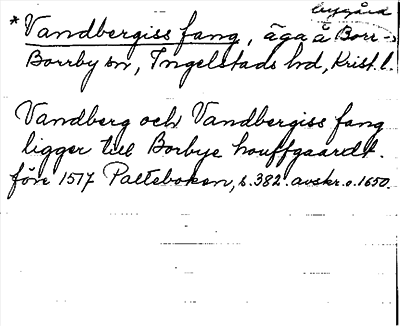 byggård
* Vandbergiss fang, äga å Borr-
Borrby sn, Ingelstads hd, Krist. l.
Vandberg och Vandbergiss fang
ligger till Borbye houffgaardt.
före 1517 Palteboken, s. 382. avskr. o. 1650.